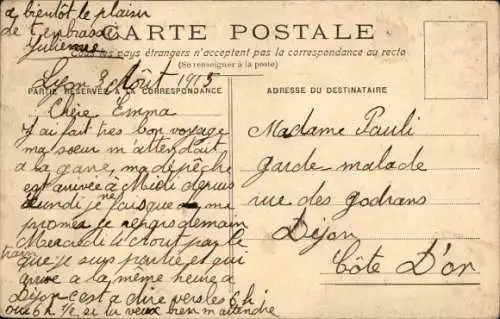 a bientôt le plaisir
de t'embrasser
Julienne
CARTE POSTALE
Tous les pays étrangers n'acceptent pas la correspondance au recto
(Se renseigner à la poste)
PARTIE RÉSERVÉE A LA CORRESPONDANCE
ADRESSE DU DESTINATAIRE
Lyon 3 Aout 1915
Chère Emma
J'ai fait très bon voyage
ma sœur m'attendait
a la gare, ma dépêche
est arrivée à Midi depuis
lundi je ma
promets je
Mercredi le
train que je suis partie et qui
arrive a la même heure a
Dijon c'est a dire vers les 6 h
ou 6 h ½ si tu veux bien m'attendre
Madame Pauli
garde malade
rue des godrans
Dijon
Côte D'or